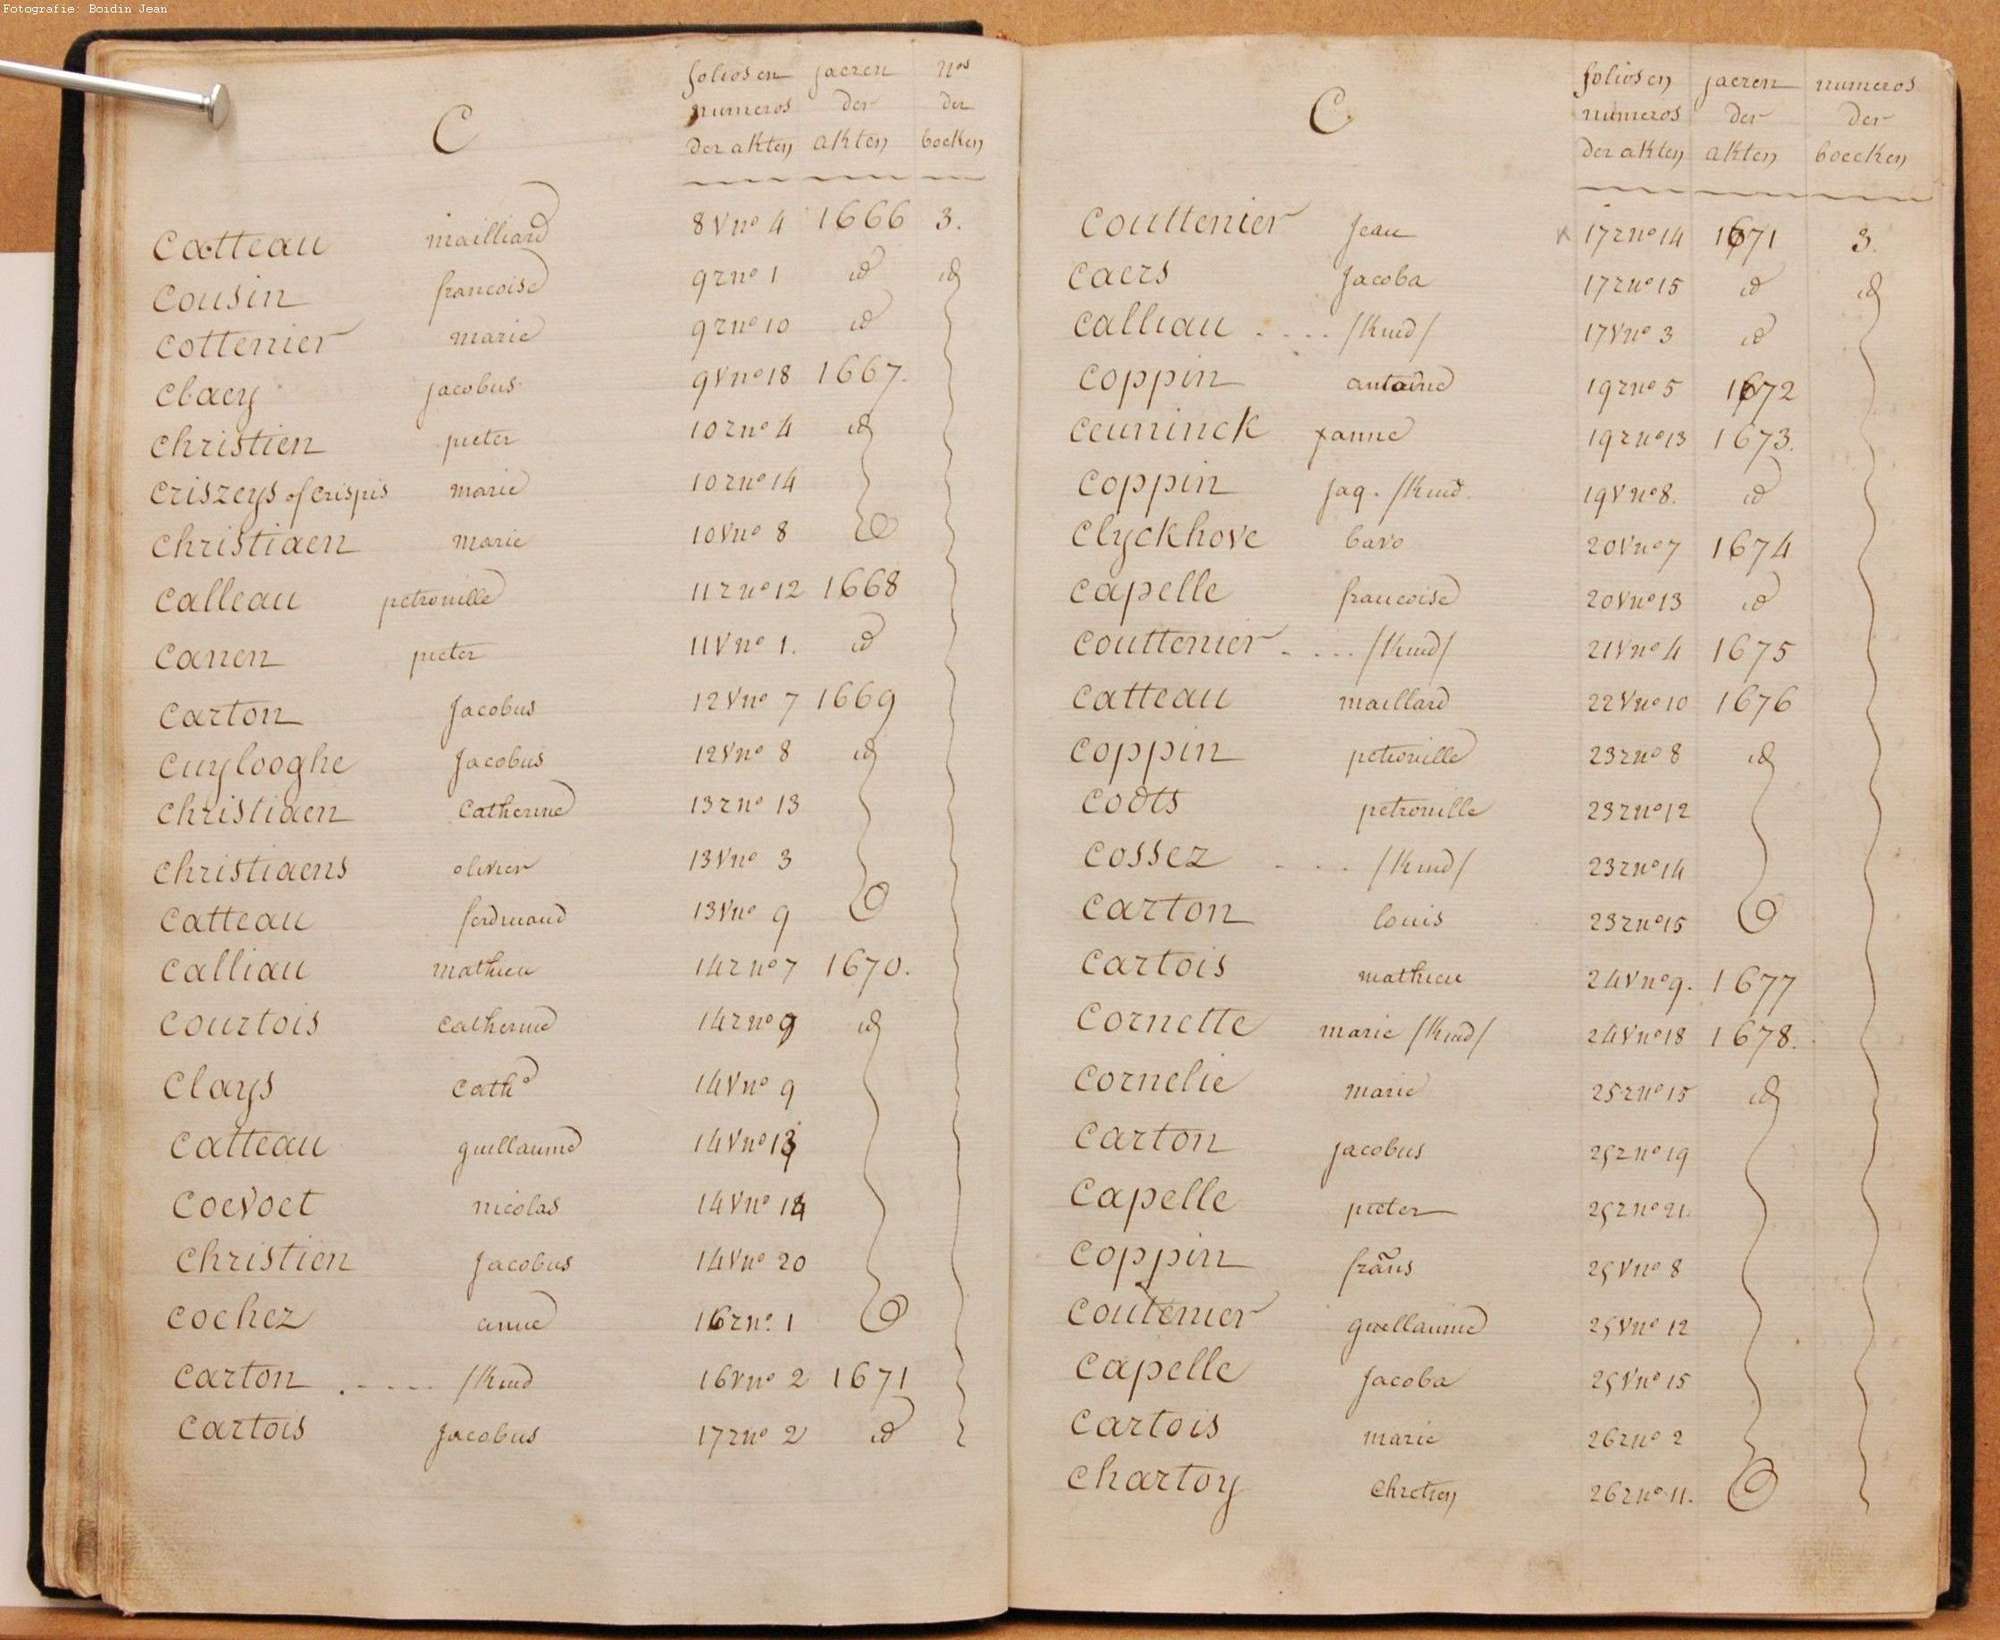 Fotografie: Boidin Jean
C
foliosen jaeren nos
numeros der der
der akten akten boeken
Catteau mailliard 8 v no 4 1666 3.
Cousin francoise 9 r no 1 id id
Cottenier marie 9 r no 10 id
Claey jacobus 9 v no 18 1667.
Christien pieter 10 r no 4 id
Criszeys of Crispis marie 10 r no 14
Christiaen marie 10 v no 8
Calleau petronille 11 r no 12 1668
Canen pieter 11 v no 1. id
Carton Jacobus 12 v no 7 1669
Cuylooghe Jacobus 12 v no 8 id
Christiaen Catherine 13 r no 13
Christiaens olivier 13 v no 3
Catteau ferdinand 13 v no 9
Calliau mathieu 14 r no 7 1670.
Courtois catherine 14 r no 9 id
Clays Cathe 14 v no 9
Catteau guillaume 14 v no 13
Coevoet nicolas 14 v no 14
Christien Jacobus 14 v no 20
Cochez anne 16 r no. 1
Carton . - - - - /Kind 16 v no 2 1671
Cartois Jacobus 17 r no 2 id
C
foliosen jaeren numeros
numeros der der
der akten akten boecken
Couttenier Jean x 17 r no 14 1671 3.
Caers Jacoba 17 r no 15 id id
Calliau - - - - /Kind/ 17 v no 3 id
Coppin antoine 19 r no 5 1672
Ceuninck anne 19 r no 13 1673.
Coppin Jaq. /Kind. 19 v no 8. id
Clyckhove bavo 20 v no 7 1674
Capelle francoise 20 v no 13 id
Couttenier - - - - /Kind/ 21 v no 4 1675
Catteau maillard 22 v no 10 1676
Coppin petronille 23 r no 8 id
Coots petronille 23 r no 12
Cossez - - - /Kind/ 23 r no 14
Carton louis 23 r no 15
Cartois mathieu 24 v no 9. 1677
Cornette marie /Kind/ 24 v no 18 1678.
Cornelie marie 25 r no 15 id
Carton jacobus 25 r no 19
Capelle pieter 25 r no 21
Coppin frans 25 v no 8
Coutenier guillaume 25 v no 12
Capelle Jacoba 25 v no 15
Cartois marie 26 r no 2
Chartoy Chretien 26 r no 11.